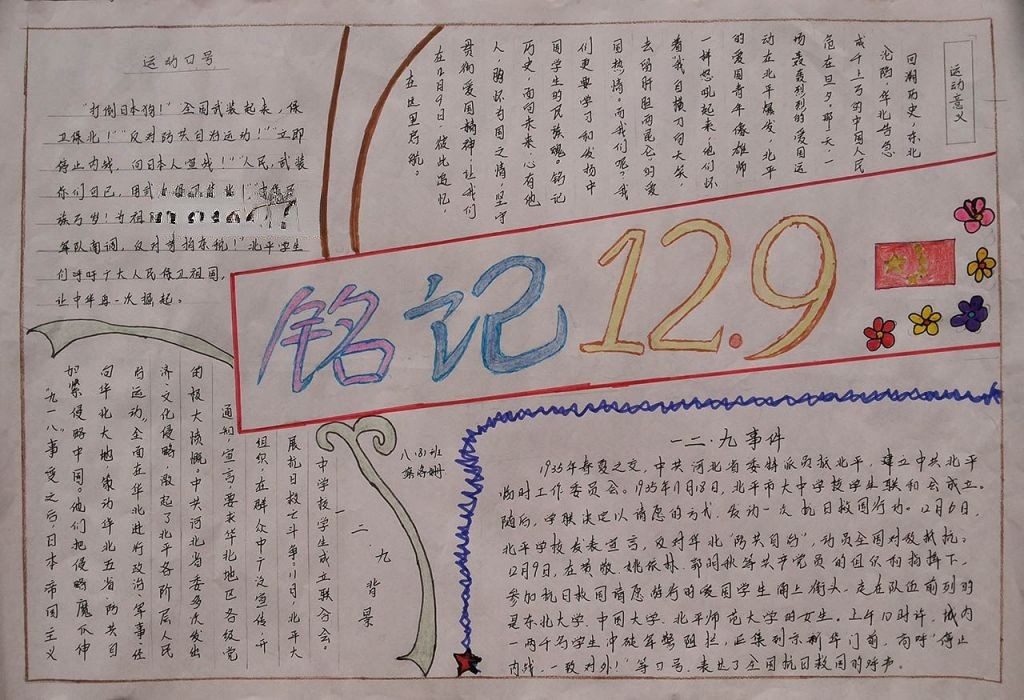 运动口号
"打倒日本狗!" 全国武装起来,保
卫保北!""反对防共自治运动!""立即
停止内战,向日本人宣战!""人民,武装
你们自己,用武
族万岁!
军队南调,反对苛捐杂税!"北平学生
们呼吁广大人民保卫祖国,
让中华再一次掘起。
运动意义
回溯历史,东北
沦陷,华北告急
成千上万的中国人民
危在旦夕。那天,一
场最轰烈烈的爱国运
动在北平爆发,北平
的爱国青年像雄师
一样怒吼起来,他们怀
着"我自横刀向天笑,
去留肝胆两昆仑"的爱
国热情。而我们呢?我
们更要学习和发扬中
国学生的民族魂。铭记
历史,面向未来,心有他
人,胸怀为国之情,坚守
贯彻爱国精神,让我们
在12月9日,彼此追忆,
在这里启航。
铭记12.9
一二·九背景
"九一八"事变之后,日本帝国主义
加紧侵略中国。他们把侵略魔爪伸
向华北大地,策动华北五省"防共自
治运动",全面在华北进行政治、军事、
济、文化侵略,激起了北平各阶层人民
的极大愤慨。中共河北省委多次发出
通知、宣言,要求华北地区各级党
组织,在群众中广泛宣传,开
展抗日救亡斗争。11月,北平大
中学校学生成立联合会。
八·(3)班
一二·九事件
1935年春夏之交,中共河北省委特派员抵北平,建立中共北平
临时工作委员会。1935年11月18日,北平市大中学校学生联和会成立。
随后,学联决定以请愿的方式,发动一次抗日救国行动。12月6日,
北平学校发表宣言,反对华北"防共自治",动员全国对敌抵抗。
12月9日,在黄敬、姚依林、郭明秋等共产党员的组织和指挥下,
参加抗日救国请愿游行的爱国学生涌上街头。走在队伍前列的
是东北大学、中国大学、北平师范大学的女生。上午10时许,城内
一两千与学生冲破军警阻拦,汇集到示新华门前,高呼"停止
内战,一致对外!"等口号,表达了全国抗日救国的呼声。